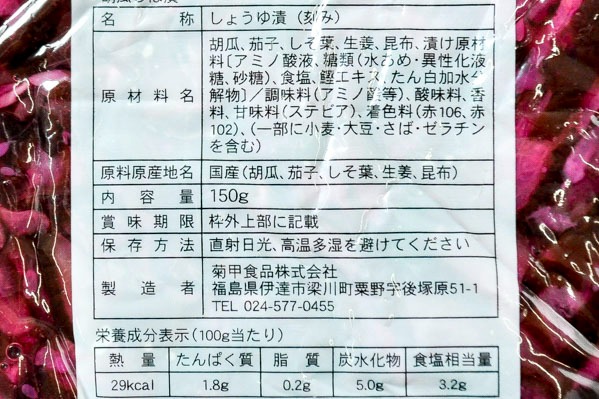 名称 しょうゆ漬（刻み）
原材料名 胡瓜、茄子、しそ葉、生姜、昆布、漬け原材
料〔アミノ酸液、糖類（水あめ・異性化液
糖、砂糖）、食塩、鰹エキス、たん白加水分
解物〕／調味料（アミノ酸等）、酸味料、香
料、甘味料（ステビア）、着色料（赤106、赤
102）、（一部に小麦・大豆・さば・ゼラチン
を含む）
原料原産地名 国産（胡瓜、茄子、しそ葉、生姜、昆布）
内容量 150g
賞味期限 枠外上部に記載
保存方法 直射日光、高温多湿を避けてください
製造者 菊甲食品株式会社
福島県伊達市梁川町粟野字後塚原51-1
TEL 024-577-0455
栄養成分表示（100g当たり）
熱量 たんぱく質 脂質 炭水化物 食塩相当量
29kcal 1.8g 0.2g 5.0g 3.2g